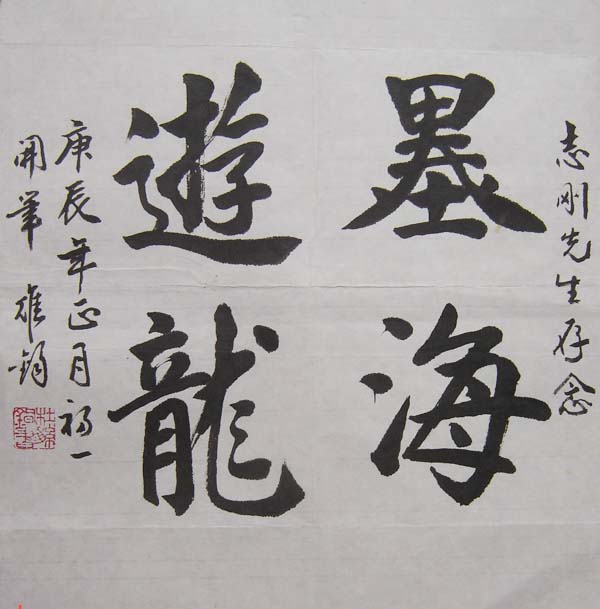 志刚先生存念
墨海
遊龍
庚辰年正月初一
開筆 雄鈞